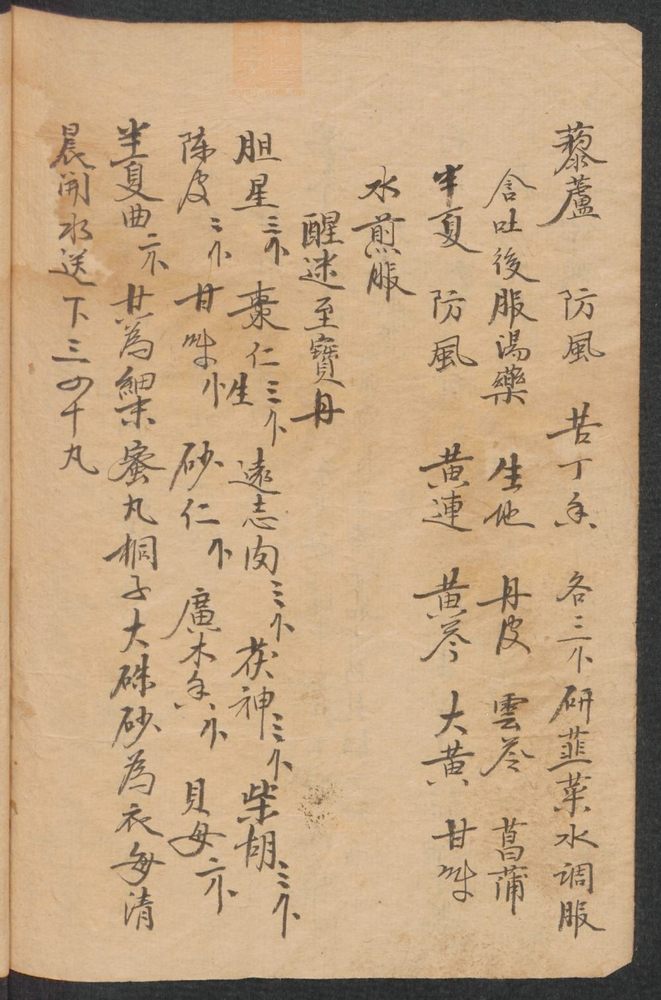 藜蘆 防風 苦丁香 各三个研韮菜水調服
含吐後服湯藥 生地 丹皮 雲苓 菖蒲
半夏 防風 黃連 黃芩 大黃 甘草
水煎服
醒迷至寶丹
胆星三个 棗仁生三个 遠志肉三个 茯神三个 柴胡三个
陈皮三个 甘草个 砂仁个 廣木香个 貝母二个
半夏曲二个 共為細末蜜丸桐子大硃砂為衣每清
晨開水送下三四十丸